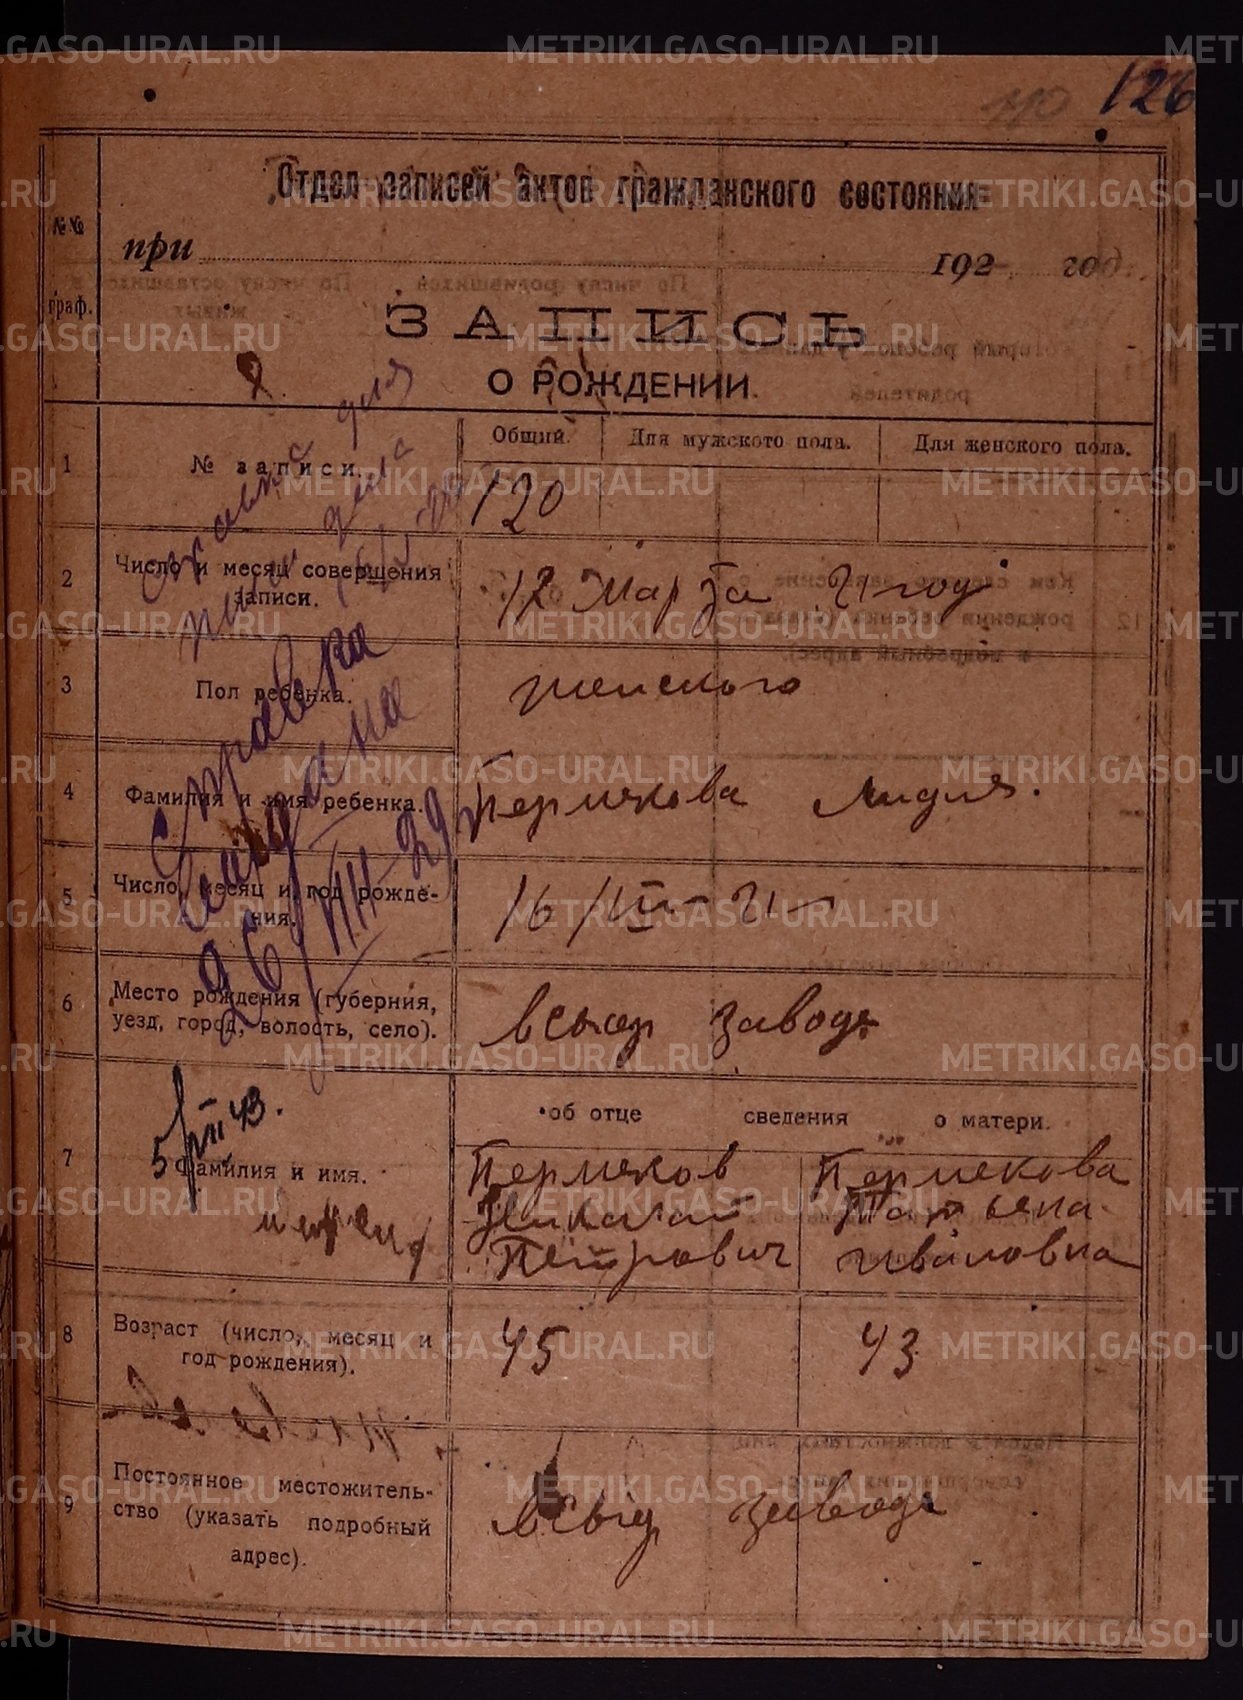 126
Отдел записей актов гражданского состояния
№№
граф.
при 192 год.
ЗАПИСЬ
О РОЖДЕНИИ.
1
№ записи.
Общий.
Для мужского пола.
Для женского пола.
120
2
Число и месяц совершения
записи.
12 Марта 21 год
3
Пол ребенка.
женского
4
Фамилия и имя ребенка.
Пермекова Лидия.
5
Число, месяц и год рожде-
ния.
16/III-21
Справка
26/VIII-29
6
Место рождения (губерния,
уезд, город, волость, село).
заводе
об отце сведения о матери.
5/VII 43.
7
Фамилия и имя.
Пермеков
Николай
Петрович
Пермекова
Татьяна
Ивановна
8
Возраст (число, месяц и
год рождения).
45
43
9
Постоянное местожитель-
ство (указать подробный
адрес).
заводе
METRIKI.GASO-URAL.RU